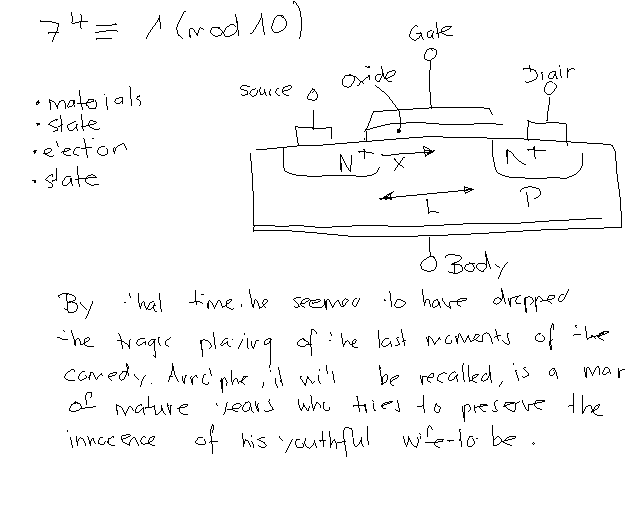 7⁴ ≡ 1 (mod 10)
• materials
• state
• election
• state
Gate
source
oxide
Drair
N+
x
n+
L
P
Body
By that time, he seemed to have dropped
the tragic playing of the last moments of the
comedy. Arnolphe, it will be recalled, is a man
of mature years who tries to preserve the
innocence of his youthful wife-to be.